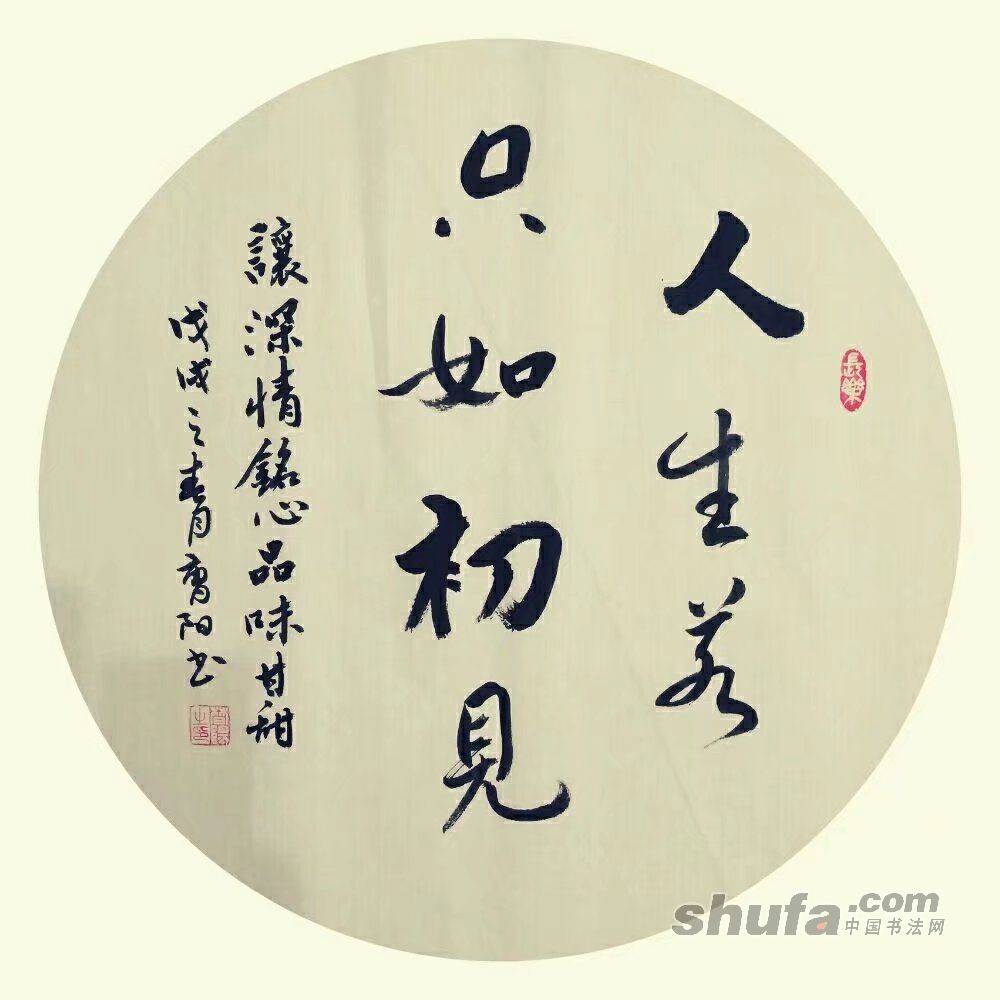 人生若
只如初見
讓深情銘心品味甘甜
戊戌之阳书
長樂
shufa.com
中国书法网